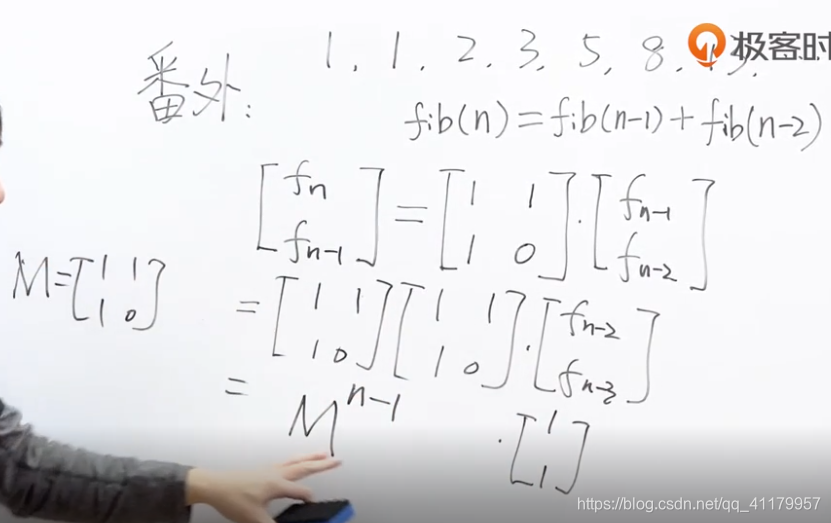 1, 1, 2, 3, 5, 8, 13, 极客时
番外:
fib(n)=fib(n-1)+fib(n-2)
[fn fn-1] = [1 1 1 0] · [fn-1 fn-2]
M=[1 1 1 0]
= [1 1 1 0] [1 1 1 0] · [fn-2 fn-3]
= M^n-1 · [1 1]
https://blog.csdn.net/qq_41179957